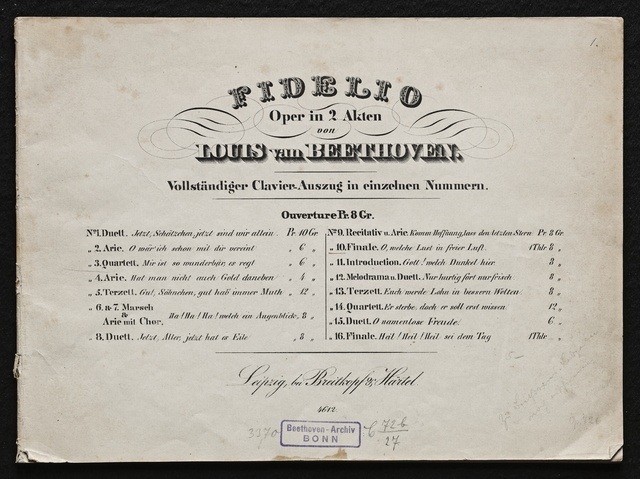 1.
FIDELIO
Oper in 2 Akten
von
LOUIS van BEETHOVEN.
Vollständiger Clavier-Auszug in einzelnen Nummern.
Ouverture Pr. 8 Gr.
No 1. Duett. Jetzt, Schätzchen, jetzt sind wir allein. Pr. 10 Gr.
„ 2. Arie. O wär' ich schon mit dir vereint „ 6 „
„ 3. Quartett. Mir ist so wunderbar, es regt „ 6 „
„ 4. Arie. Hat man nicht auch Gold daneben „ 4 „
„ 5. Terzett. Gut, Söhnchen, gut hab' immer Muth „ 12 „
„ 6. & 7. Marsch
&
Arie mit Chor. Ha! Ha! Ha! welch ein Augenblick. 8 „
„ 8. Duett. Jetzt, Alter, jetzt hat es Eile „ 8 „
No 9. Recitativ u. Arie. Komm Hoffnung, lass den letzten Stern Pr. 8 Gr.
„ 10. Finale. O, welche Lust in freier Luft. 1 Thlr. 8 „
„ 11. Introduction. Gott! welch Dunkel hier 8 „
„ 12. Melodrama u. Duett. Nur hurtig fort nur frisch 8 „
„ 13. Terzett. Euch werde Lohn in bessern Welten 8 „
„ 14. Quartett. Er sterbe, doch er soll erst wissen 12 „
„ 15. Duett. O namenlose Freude! 6 „
„ 16. Finale. Heil! Heil! Heil sei dem Tag 1 Thlr. „ „
Leipzig, bei Breitkopf & Härtel
4612
3370
Beethoven-Archiv
BONN
C 72b
27